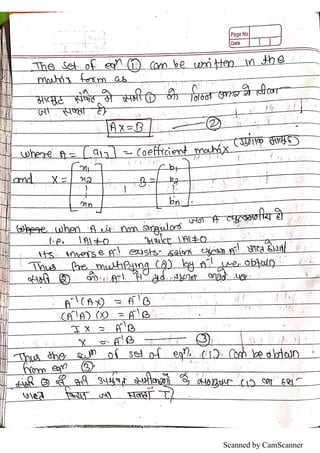 Page No.
Date
The set of eqn ① can be written in the
matrix form as
आव्यूह संकेत में समी ① को निम्न प्रकार से लिखा
जा सकता है।
AX=B ②
where A = [aij] = coefficient matrix (गुणांक आव्यूह)
and X = [x1 x2 xn] , B = [b1 b2 bn]
where when A is non singular जब A व्युत्क्रमणीय हो
i.e. |A|≠0 अर्थात |A|≠0
Its inverse A-1 exists.
Thus Pre multiplying (2) by A-1 we obtain
समी ② को A-1 से पूर्व गुणन करने पर
A-1(AX) = A-1B
(A-1A)(X) = A-1B
IX = A-1B
X = A-1B ③
Thus the sun of set of eqn. (1) can be obtain
from eqn ③
समी ③ से की समीकरणों के समुच्चय (1) का हल
प्राप्त किया जा सकता है।
Scanned by CamScanner